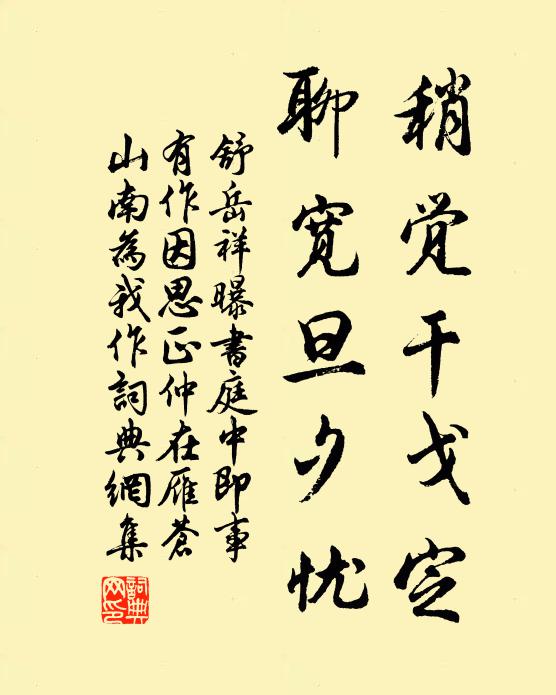 稍觉干戈定
聊宽旦夕忧
舒岳祥曝書庭中即事
有作因思正仲在雁苍
山南為我作詞典網集
詞典网印